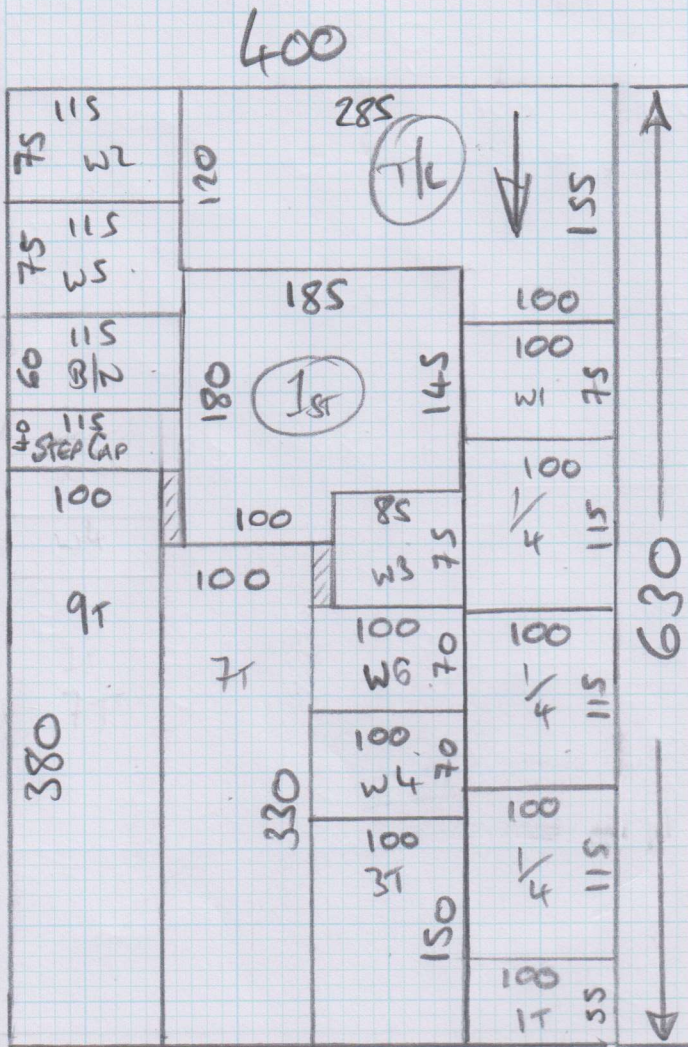 400
115
75 W2
120
285
T/L
155
115
75 W5
185
100
115
60 B/N
180
1ST
145
100
W1 75
115
40 STEP CAP
100
1/4 115
100
85
W3 75
100
9T
100
7T
630
100
W6 70
100
1/4 115
380
330
100
W4 70
100
1/4 115
100
3T
150
100
1T 55